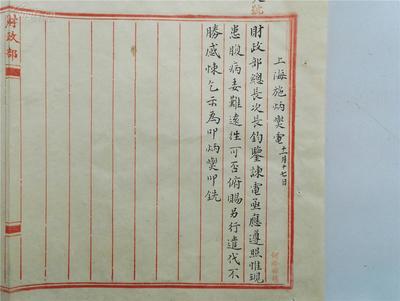 上海施炳燮電十一月十七日
財政部總長次長鈞鑒諫電亟應遵照惟現
患腹病委難遠徃可否俯賜另行遣代不
勝感悚乞示為叩炳燮叩銑
財政部